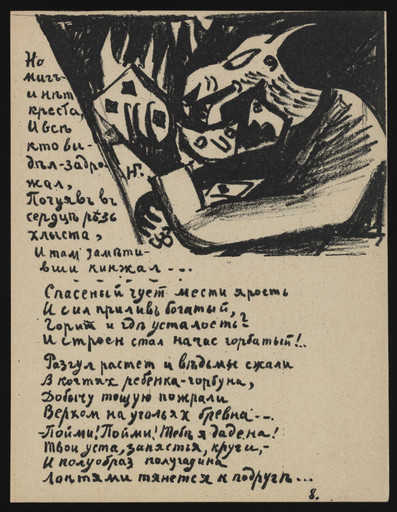 Но
мигъ-
и нѣт
креста,
И всѣ
кто ви-
дѣл-задро
жал,
Почуявъ въ
сердцѣ рѣзь
хлыста,
И там замѣти-
вши кинжал ---
Н.Г.
Спасеный чует мести ярость
И сил приливъ богатый,
Горит и гдѣ усталость?
И строен стал на час горбатый!..
Разгул растет и вѣдьмы сжали
В когтях ребенка-горбуна,
Добычу тощую пожрали
Верхом на угольях бревна---
-Пойми! Пойми! Тебѣ я дадена!
Твои уста, запястья, круги,-
И полуобраз полугадина
Локтями тянется к подругѣ...
8.